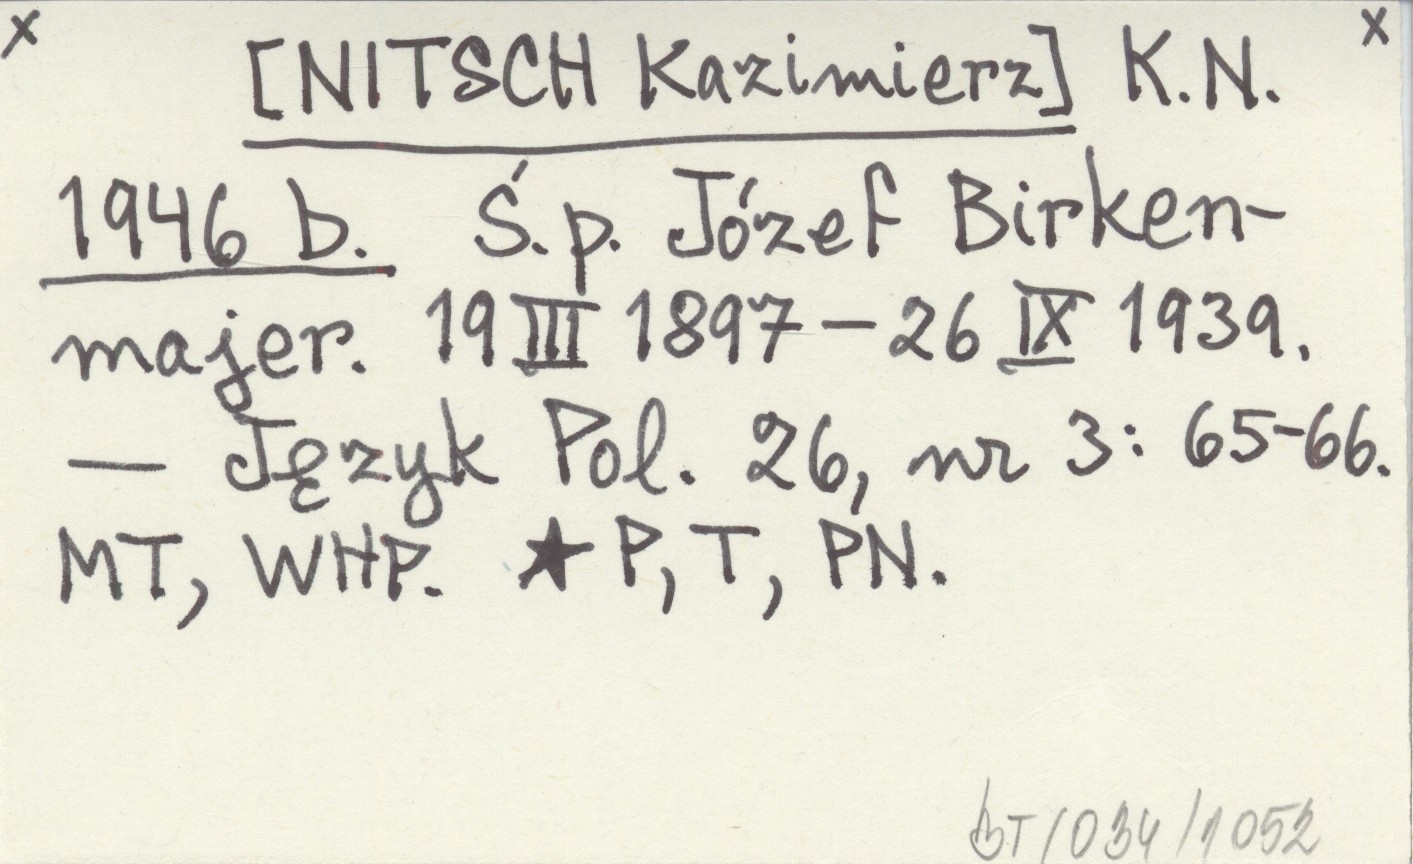 x x
[NITSCH Kazimierz] K.N.
1946 b. Ś.p. Józef Birken-
majer. 19 III 1897 – 26 IX 1939.
— Język Pol. 26, nr 3: 65-66.
MT, WHP. ★ P, T, PN.
BT/034/1052